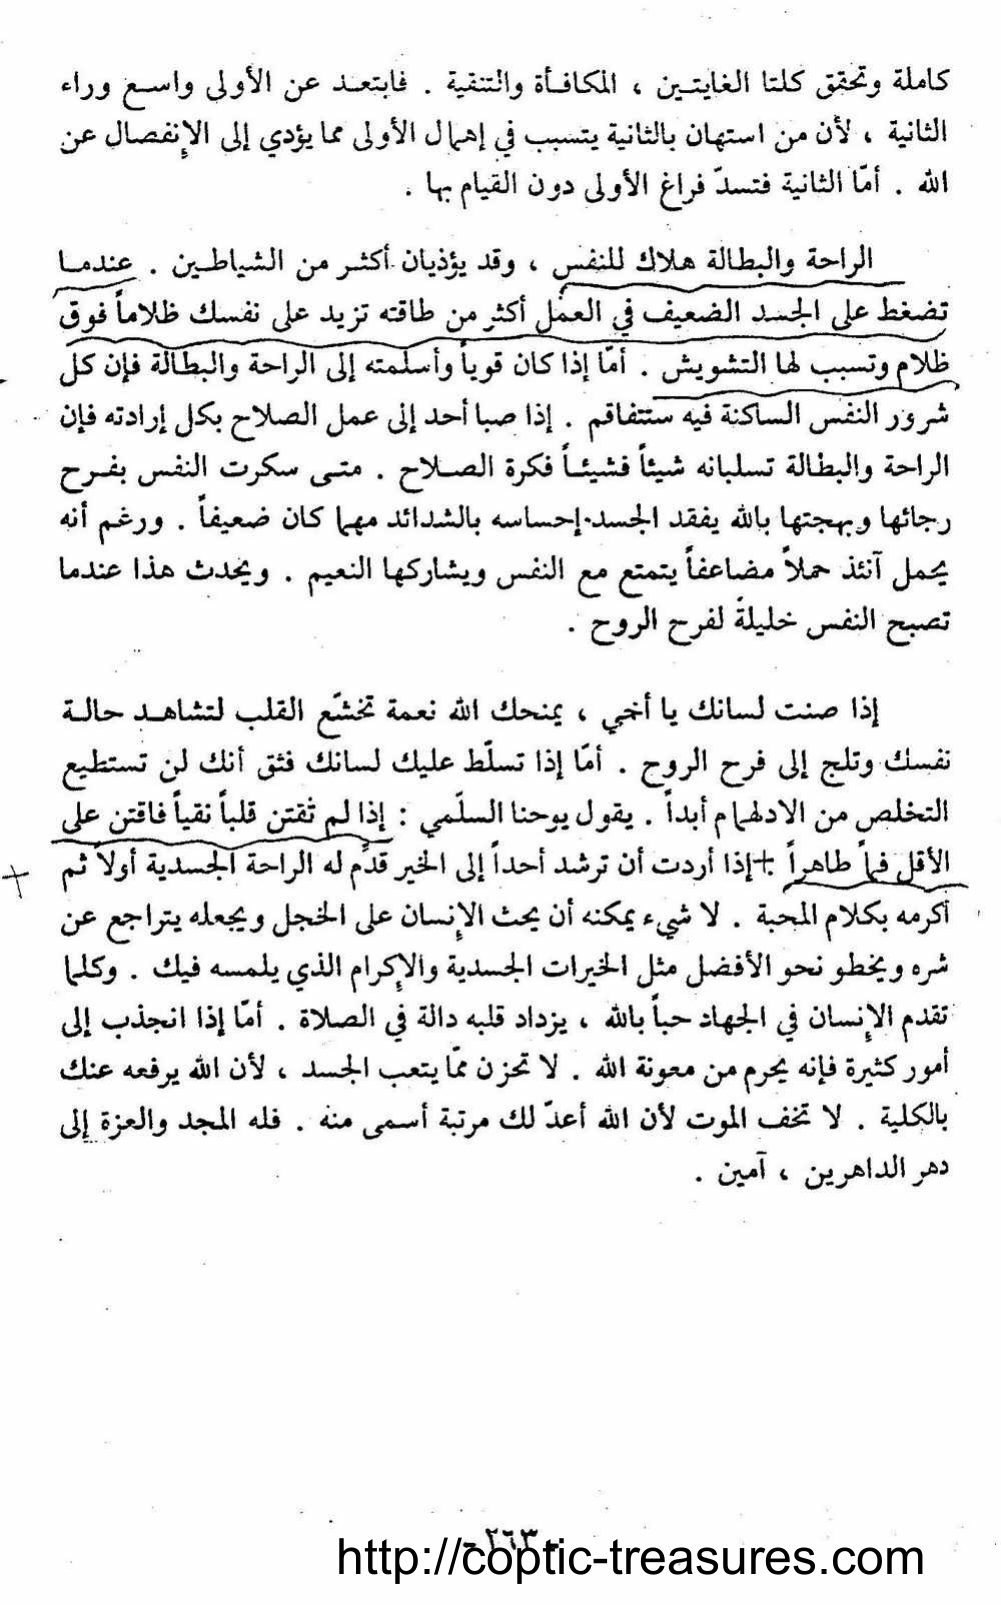 كاملة وتحقق كلتا الغايتين ، المكافأة والتنقية . فابتعد عن الأولى واسع وراء
الثانية ، لأن من استهان بالثانية يتسبب في إهمال الأولى مما يؤدي إلى الإنفصال عن
الله . أمّا الثانية فتسدّ فراغ الأولى دون القيام بها .
الراحة والبطالة هلاك للنفس ، وقد يؤذيان أكثر من الشياطين . عندما
تضغط على الجسد الضعيف في العمل أكثر من طاقته تزيد على نفسك ظلاماً فوق
ظلام وتسبب لها التشويش . أمّا إذا كان قوياً وأسلمته إلى الراحة والبطالة فإن كل
شرور النفس الساكنة فيه ستتفاقم . إذا صبا أحد إلى عمل الصلاح بكل إرادته فإن
الراحة والبطالة تسلبانه شيئاً فشيئاً فكرة الصلاح . متى سكرت النفس بفرح
رجائها وبهجتها بالله يفقد الجسد إحساسه بالشدائد مهما كان ضعيفاً . ورغم أنه
يحمل آنئذ حملاً مضاعفاً يتمتع مع النفس ويشاركها النعيم . ويحدث هذا عندما
تصبح النفس خليلةً لفرح الروح .
إذا صنت لسانك يا أخي ، يمنحك الله نعمة تخشّع القلب لتشاهد حالة
نفسك وتلج إلى فرح الروح . أمّا إذا تسلّط عليك لسانك فثق أنك لن تستطيع
التخلص من الادلهمام أبداً . يقول يوحنا السلّمي : إذا لم تقتن قلباً نقياً فاقتن على
الأقل فماً طاهراً . + إذا أردت أن ترشد أحداً إلى الخير قدّم له الراحة الجسدية أولاً ثم
أكرمه بكلام المحبة . لا شيء يمكنه أن يحث الإنسان على الخجل ويجعله يتراجع عن
شره ويخطو نحو الأفضل مثل الخيرات الجسدية والإكرام الذي يلمسه فيك . وكلما
تقدم الإنسان في الجهاد حباً بالله ، يزداد قلبه دالة في الصلاة . أمّا إذا انجذب إلى
أمور كثيرة فإنه يحرم من معونة الله . لا تحزن ممّا يتعب الجسد ، لأن الله يرفعه عنك
بالكلية . لا تخف الموت لأن الله أعدّ لك مرتبة أسمى منه . فله المجد والعزة إلى
دهر الداهرين ، آمين .
- ٢٦٣ -
http://coptic-treasures.com